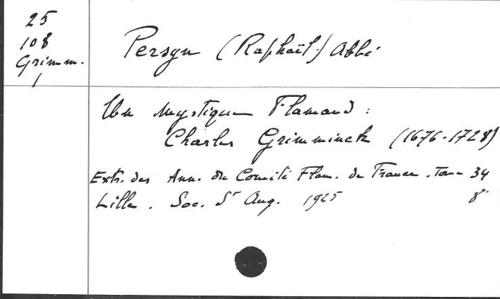 25
108
Grimm.
1
Persyn (Raphaël) Abbé
Un mystique Flamand :
Charles Grimminck (1676-1728)
Extr. des Ann. du Comité Flam. de France. Tome 34
Lille. Soc. St Aug. 1925 8°